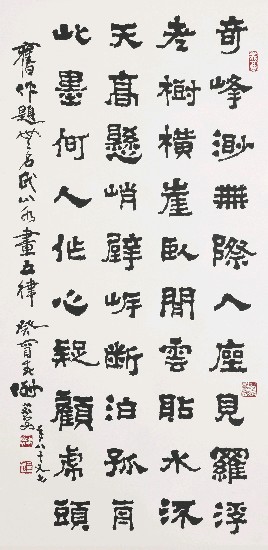 奇峰渺無際入座見羅浮
老樹橫崖臥閒雲貼水流
天高懸峭壁岸斷泊孤舟
此墨何人作心疑顧虎頭
舊作題無名氏山水畫五律